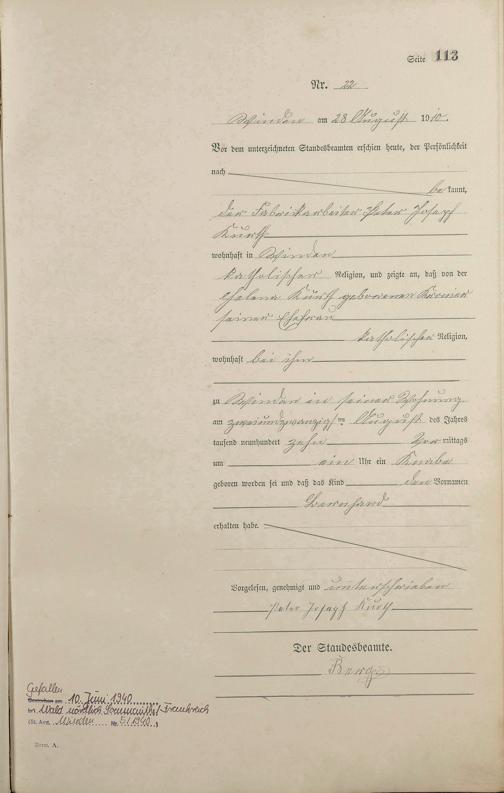 Seite 113
Nr. 22
Winden am 23 August 1910.
Vor dem unterzeichneten Standesbeamten erschien heute, der Persönlichkeit
nach
be kannt,
der Fabrikarbeiter Peter Joseph
Kurth
wohnhaft in Winden
katholischer Religion, und zeigte an, daß von der
Helena Kurth geborenen
seiner Ehefrau
katholischer Religion,
wohnhaft bei ihm
zu Winden in seiner Wohnung
am zweiundzwanzigsten August des Jahres
tausend neunhundert zehn Vor mittags
um ein Uhr ein Knabe
geboren worden sei und daß das Kind den Vornamen
Bernhard
erhalten habe.
Vorgelesen, genehmigt und unterschrieben
Peter Joseph Kurth
Der Standesbeamte.
Berg
Gefallen
am 10. Juni 1940
in Wald nördlich Frankreich
(St. Amt Nr. 5/1940)
Form. A.